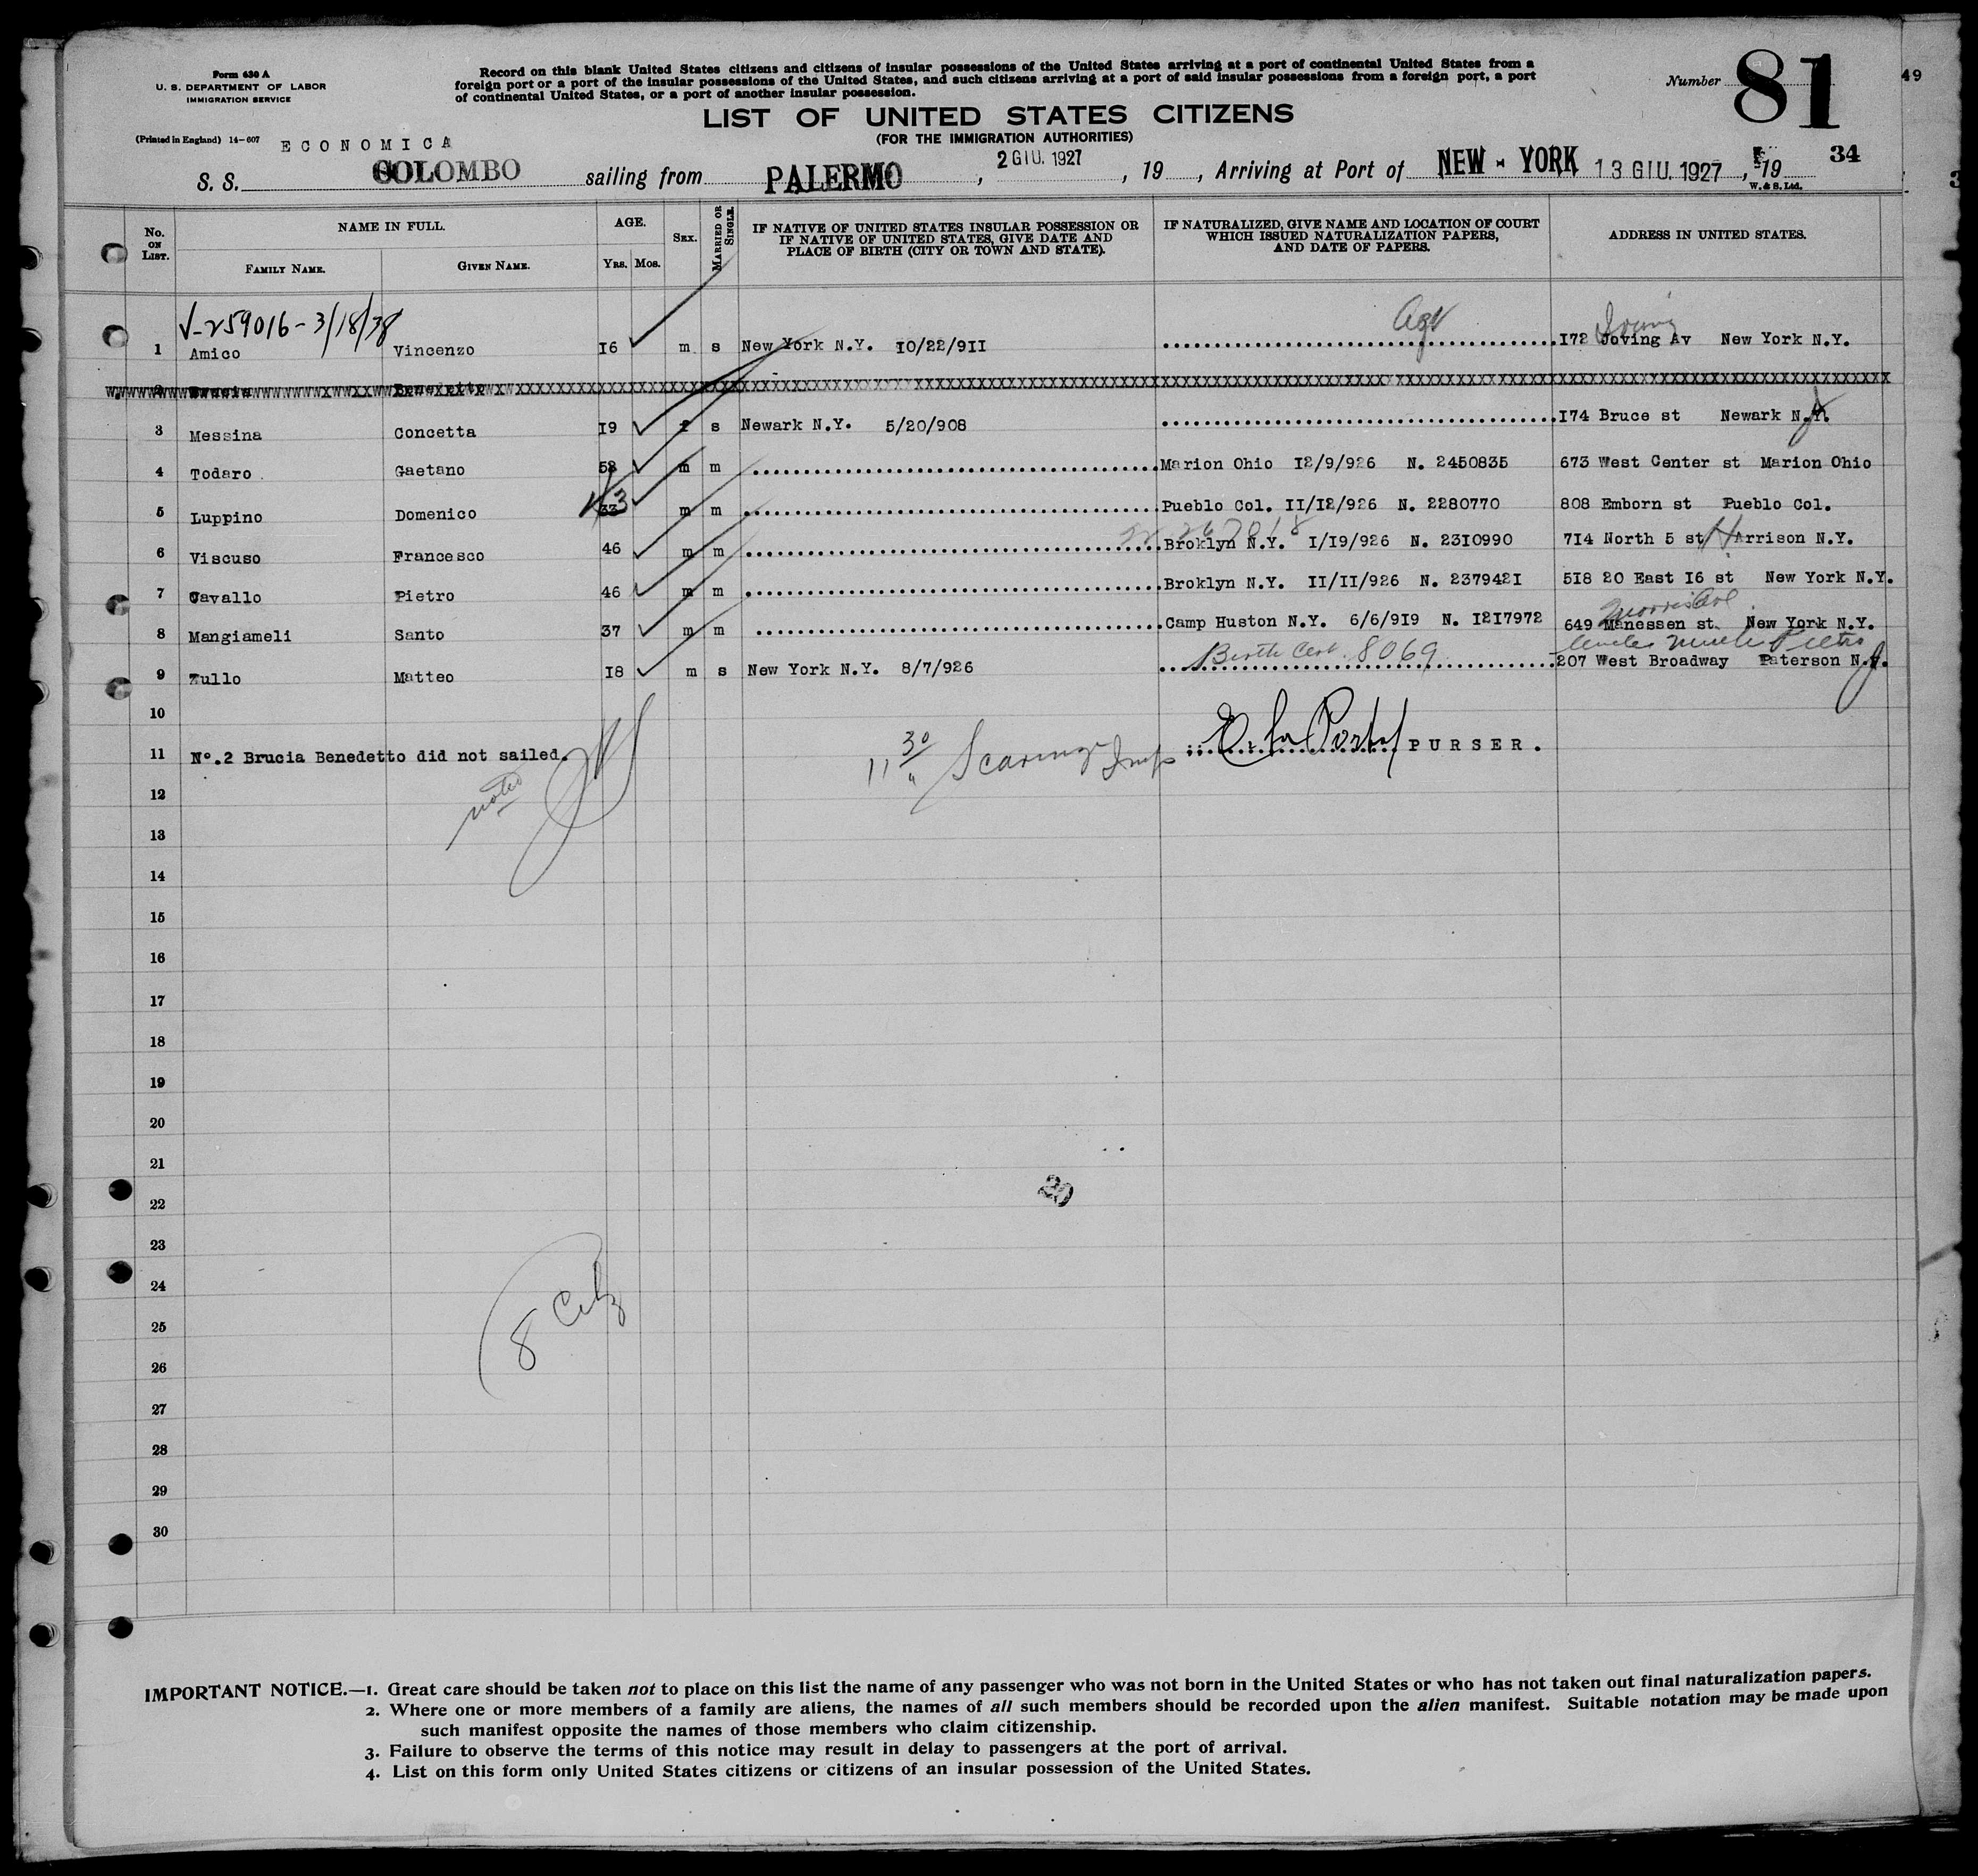 Form 630 A
U. S. DEPARTMENT OF LABOR
IMMIGRATION SERVICE
(Printed in England) 14-607
Record on this blank United States citizens and citizens of insular possessions of the United States arriving at a port of continental United States from a
foreign port or a port of the insular possessions of the United States, and such citizens arriving at a port of said insular possessions from a foreign port, a port
of continental United States, or a port of another insular possession.
Number 81
49
LIST OF UNITED STATES CITIZENS
(FOR THE IMMIGRATION AUTHORITIES)
ECONOMICA
34
S. S. COLOMBO sailing from PALERMO, 2 GIU. 1927, 19, Arriving at Port of NEW-YORK 13 GIU. 1927, 19
W. & S. Ltd.
No. ON LIST. NAME IN FULL. FAMILY NAME. GIVEN NAME. AGE. YRS. MOS. SEX. MARRIED OR SINGLE. IF NATIVE OF UNITED STATES INSULAR POSSESSION OR IF NATIVE OF UNITED STATES, GIVE DATE AND PLACE OF BIRTH (CITY OR TOWN AND STATE). IF NATURALIZED, GIVE NAME AND LOCATION OF COURT WHICH ISSUED NATURALIZATION PAPERS, AND DATE OF PAPERS. ADDRESS IN UNITED STATES.
V-259016-3/18/38 Irving
1 Amico Vincenzo I6 m s New York N.Y. I0/22/9II I72 Joving Av New York N.Y.
2 Brucia Benedetto
3 Messina Concetta I9 f s Newark N.Y. 5/20/908 I74 Bruce st Newark N.J.
4 Todaro Gaetano 58 m m Marion Ohio I2/9/926 N. 2450835 673 West Center st Marion Ohio
5 Luppino Domenico 33 43 m m Pueblo Col. II/I2/926 N. 2280770 808 Emborn st Pueblo Col.
6 Viscuso Francesco 46 m m Broklyn N.Y. I/I9/926 N. 23I0990 7I4 North 5 st Harrison N.Y.
7 Cavallo Pietro 46 m m Broklyn N.Y. II/II/926 N. 237942I 5I8 20 East I6 st New York N.Y.
Morris Ave
8 Mangiameli Santo 37 m m Camp Huston N.Y. 6/6/9I9 N. I2I7972 649 Manessen st. New York N.Y.
Birth Cert. 8069
9 Zullo Matteo I8 m s New York N.Y. 8/7/926 207 West Broadway Paterson N.J.
10
11 N°.2 Brucia Benedetto did not sailed. 11 30 PURSER.
noted
12
13
14
15
16
17
18
19
20
21
22
20
23
24
25
8 Citz
26
27
28
29
30
IMPORTANT NOTICE.—1. Great care should be taken not to place on this list the name of any passenger who was not born in the United States or who has not taken out final naturalization papers.
2. Where one or more members of a family are aliens, the names of all such members should be recorded upon the alien manifest. Suitable notation may be made upon
such manifest opposite the names of those members who claim citizenship.
3. Failure to observe the terms of this notice may result in delay to passengers at the port of arrival.
4. List on this form only United States citizens or citizens of an insular possession of the United States.